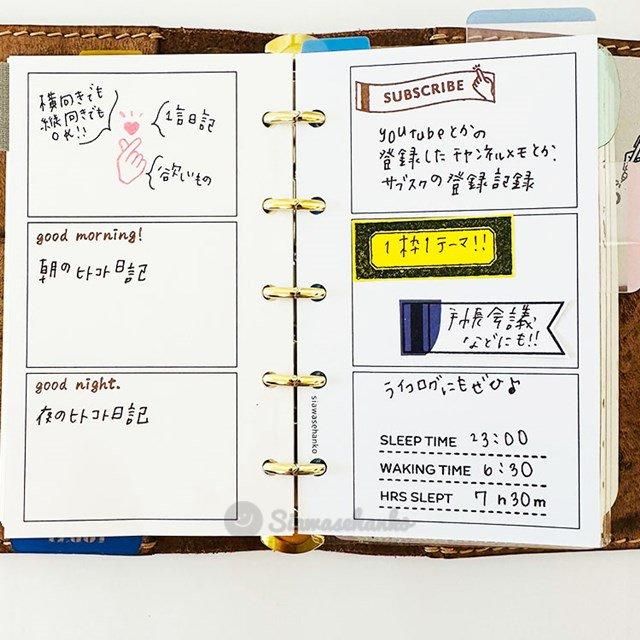 横向きでも
縦向きでも
OK!!
1言日記
欲いもの
good morning!
朝のヒトコト日記
good night.
夜のヒトコト日記
SUBSCRIBE
youtubeとかの
登録したチャンネルメモとか、
サブスクの登録記録
1枠1テーマ!!
手帳会議
などにも!!
ライフログにもぜひ♪
SLEEP TIME 23:00
WAKING TIME 6:30
HRS SLEPT 7h30m
siawasehanko
Siawasehanko